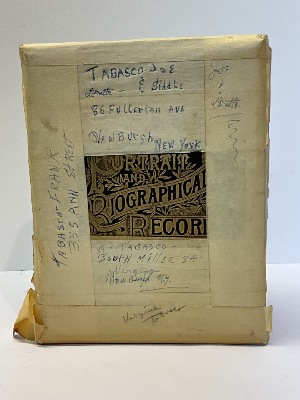 TABASCO JOE
& Biddle
86 Fullerton Ave
NewBurgh New York
Joe
&
PORTRAIT
AND
BIOGRAPHICAL
RECORD
TABASCO
South Miller St
Virginia
NewBurgh NY.
Virginia
Tabasco
TABASCO FRANK
335 ANN STREET